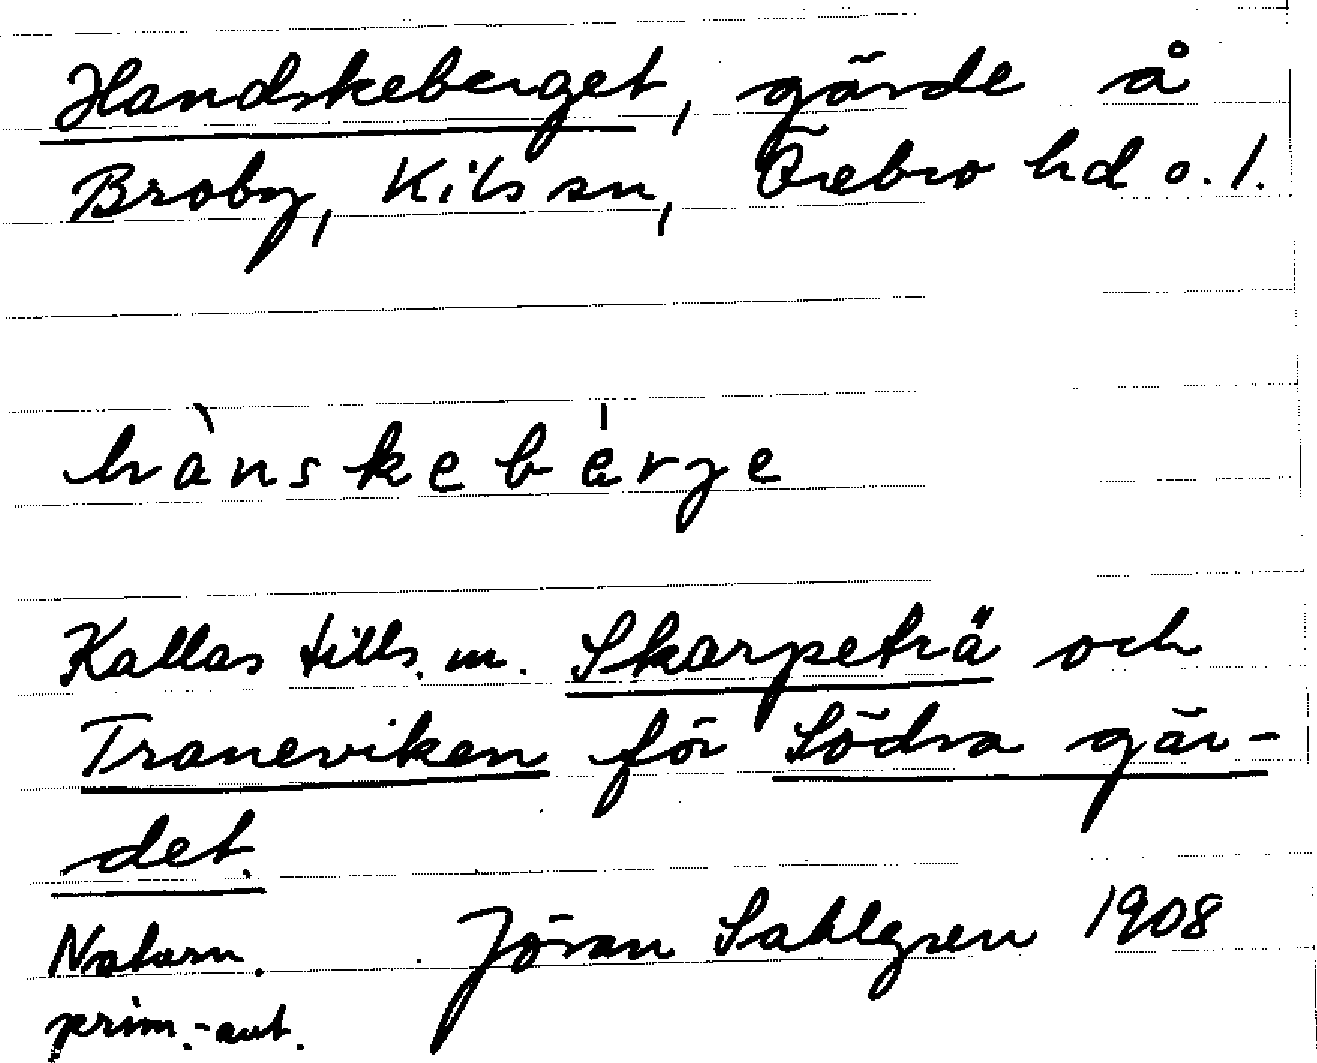 Handskeberget, gärde å
Broby, Kils sn, Örebro hd o. l.
hànskebe̍rge
Kallas tills. m. Skarpeträ och
Traneviken för Södra gär-
det.
Naturn. Jöran Sahlgren 1908
prim.-ant.